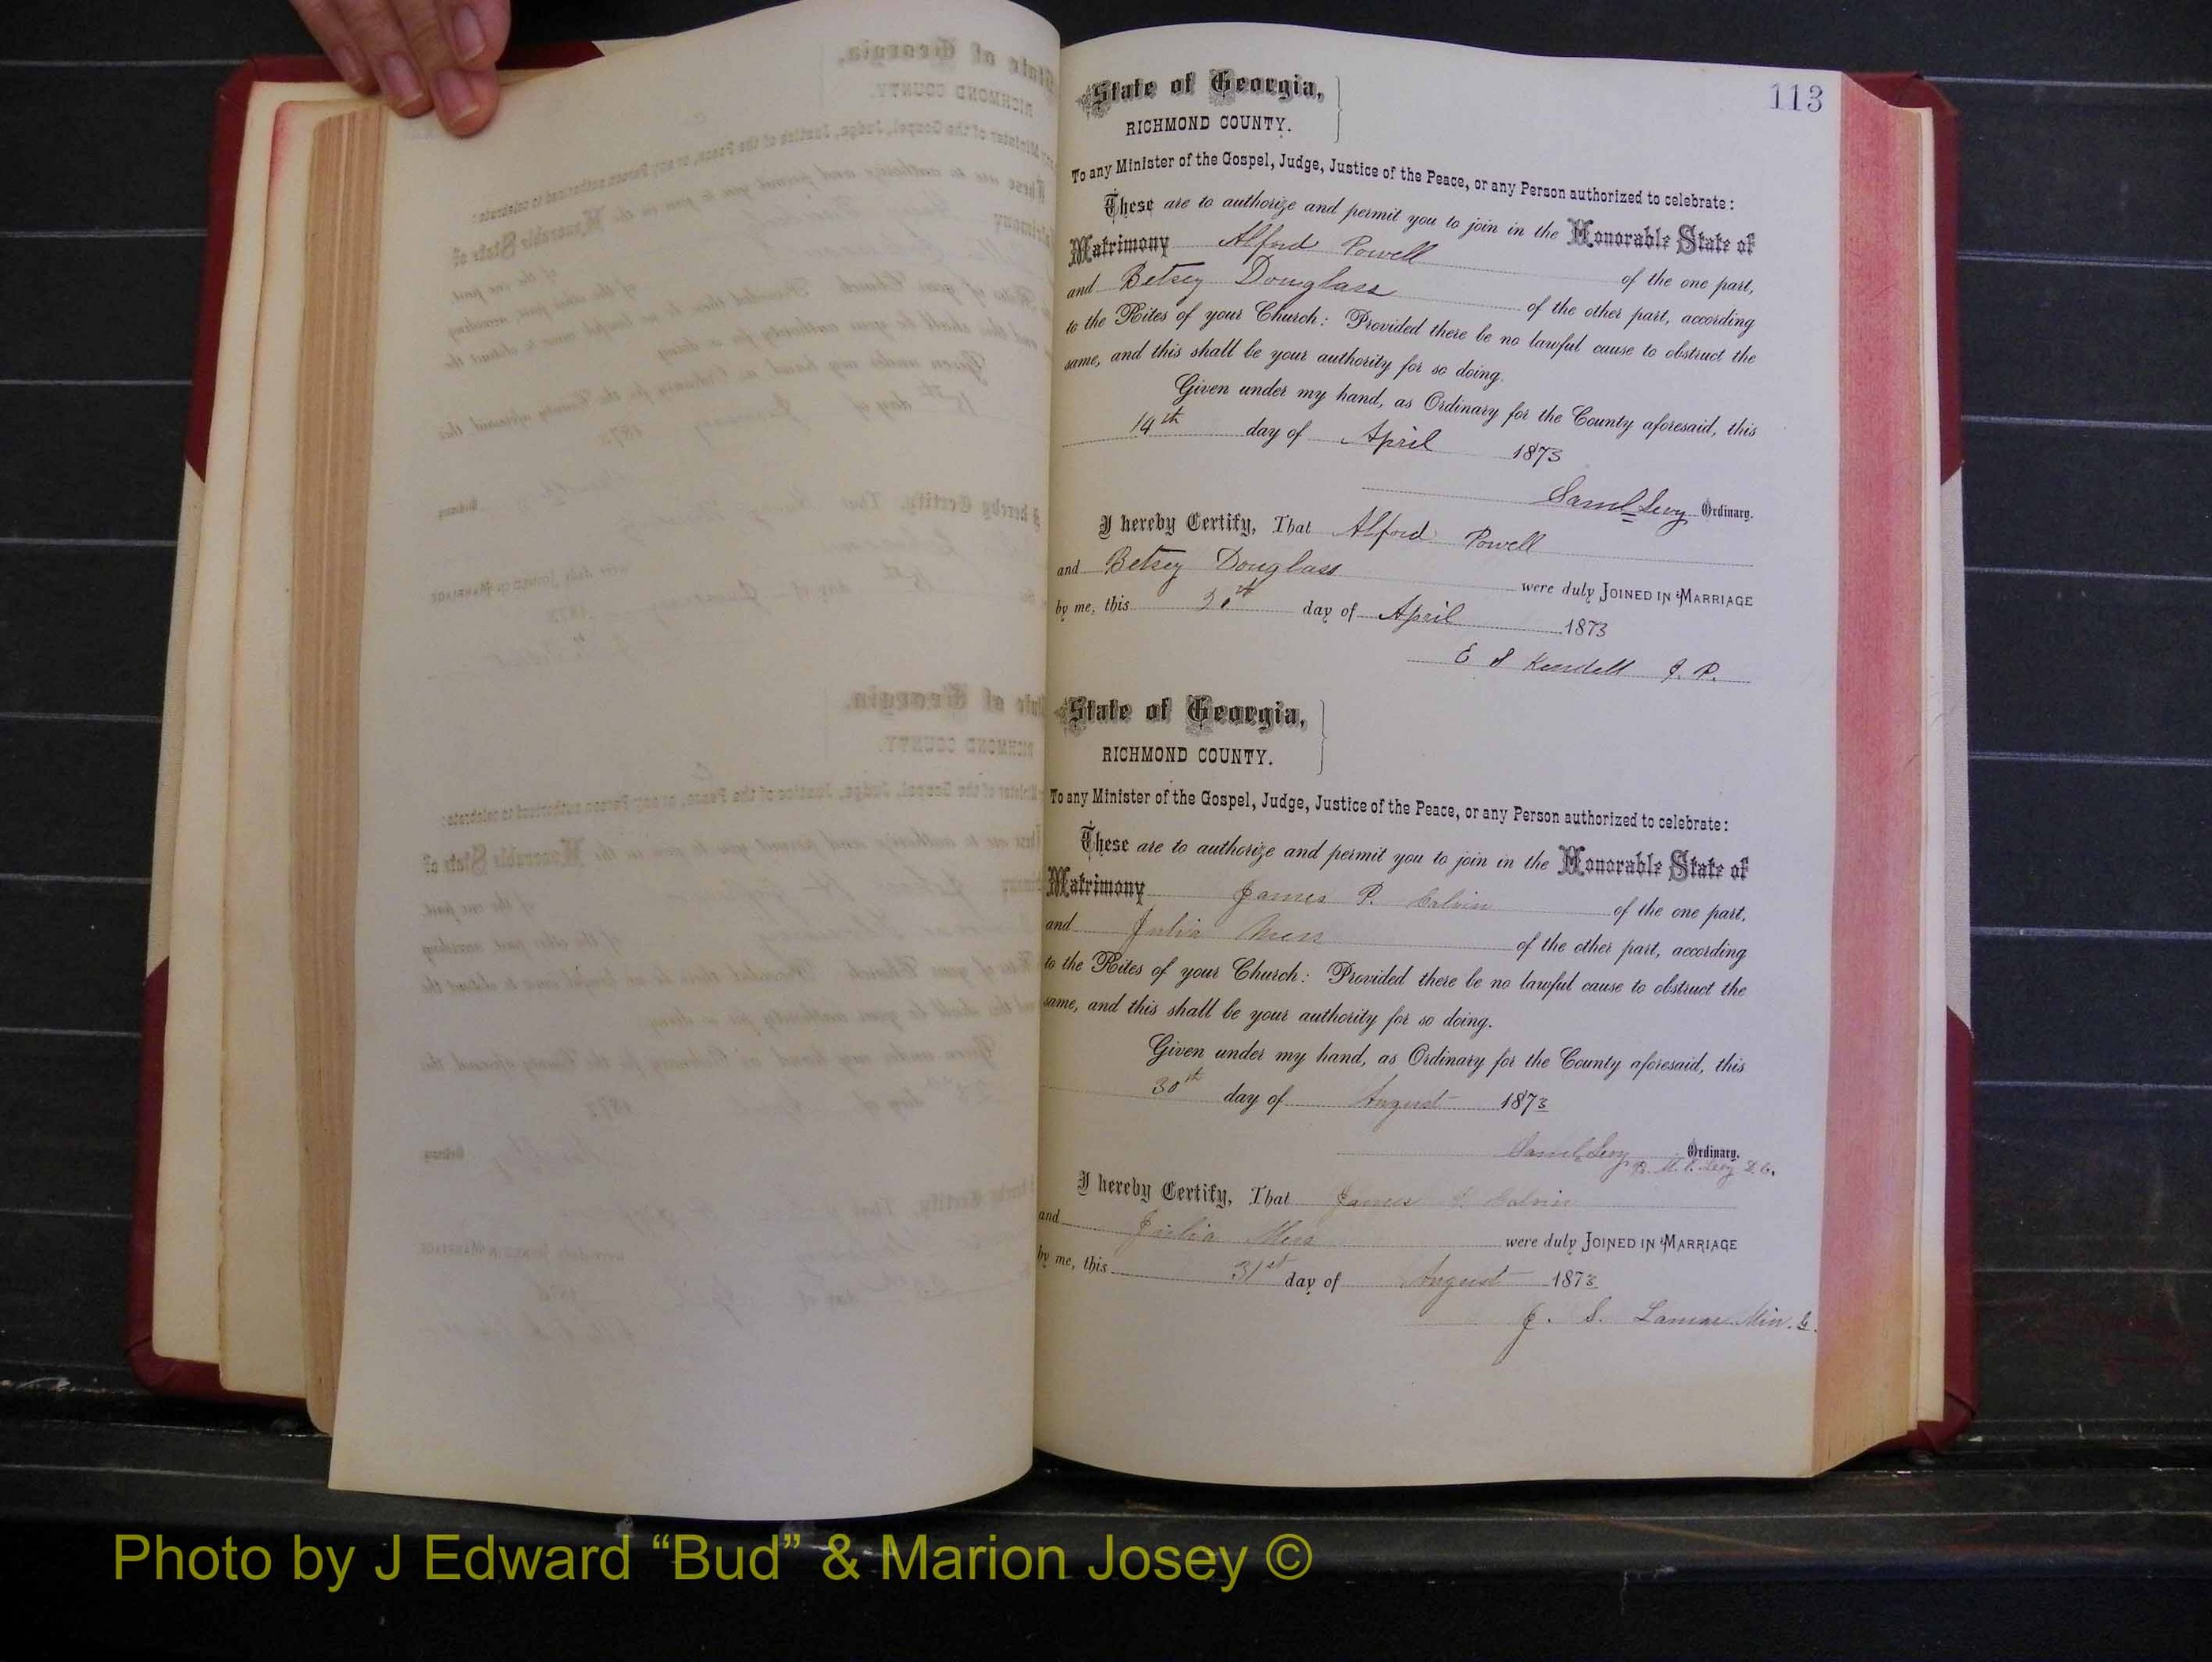 113
State of Georgia,
RICHMOND COUNTY.
To any Minister of the Gospel, Judge, Justice of the Peace, or any Person authorized to celebrate:
These are to authorize and permit you to join in the Honorable State of
Matrimony Alford Powell of the one part,
and Betsey Douglass of the other part, according
to the Rites of your Church: Provided there be no lawful cause to obstruct the
same, and this shall be your authority for so doing.
Given under my hand, as Ordinary for the County aforesaid, this
14th day of April 1873
Saml Levy Ordinary.
I hereby Certify, That Alford Powell
and Betsey Douglass were duly JOINED IN MARRIAGE
by me, this day of April 1873
E S Kendall J. P.
State of Georgia,
RICHMOND COUNTY.
To any Minister of the Gospel, Judge, Justice of the Peace, or any Person authorized to celebrate:
These are to authorize and permit you to join in the Honorable State of
Matrimony James P. Calvin of the one part,
and Julia of the other part, according
to the Rites of your Church: Provided there be no lawful cause to obstruct the
same, and this shall be your authority for so doing.
Given under my hand, as Ordinary for the County aforesaid, this
30th day of August 1873
Saml Levy Ordinary.
Levy D. C.
I hereby Certify, That James Calvin
and Julia were duly JOINED IN MARRIAGE
by me, this 31st day of August 1873
J. S. Lamar Min. G.
Photo by J Edward “Bud” & Marion Josey ©